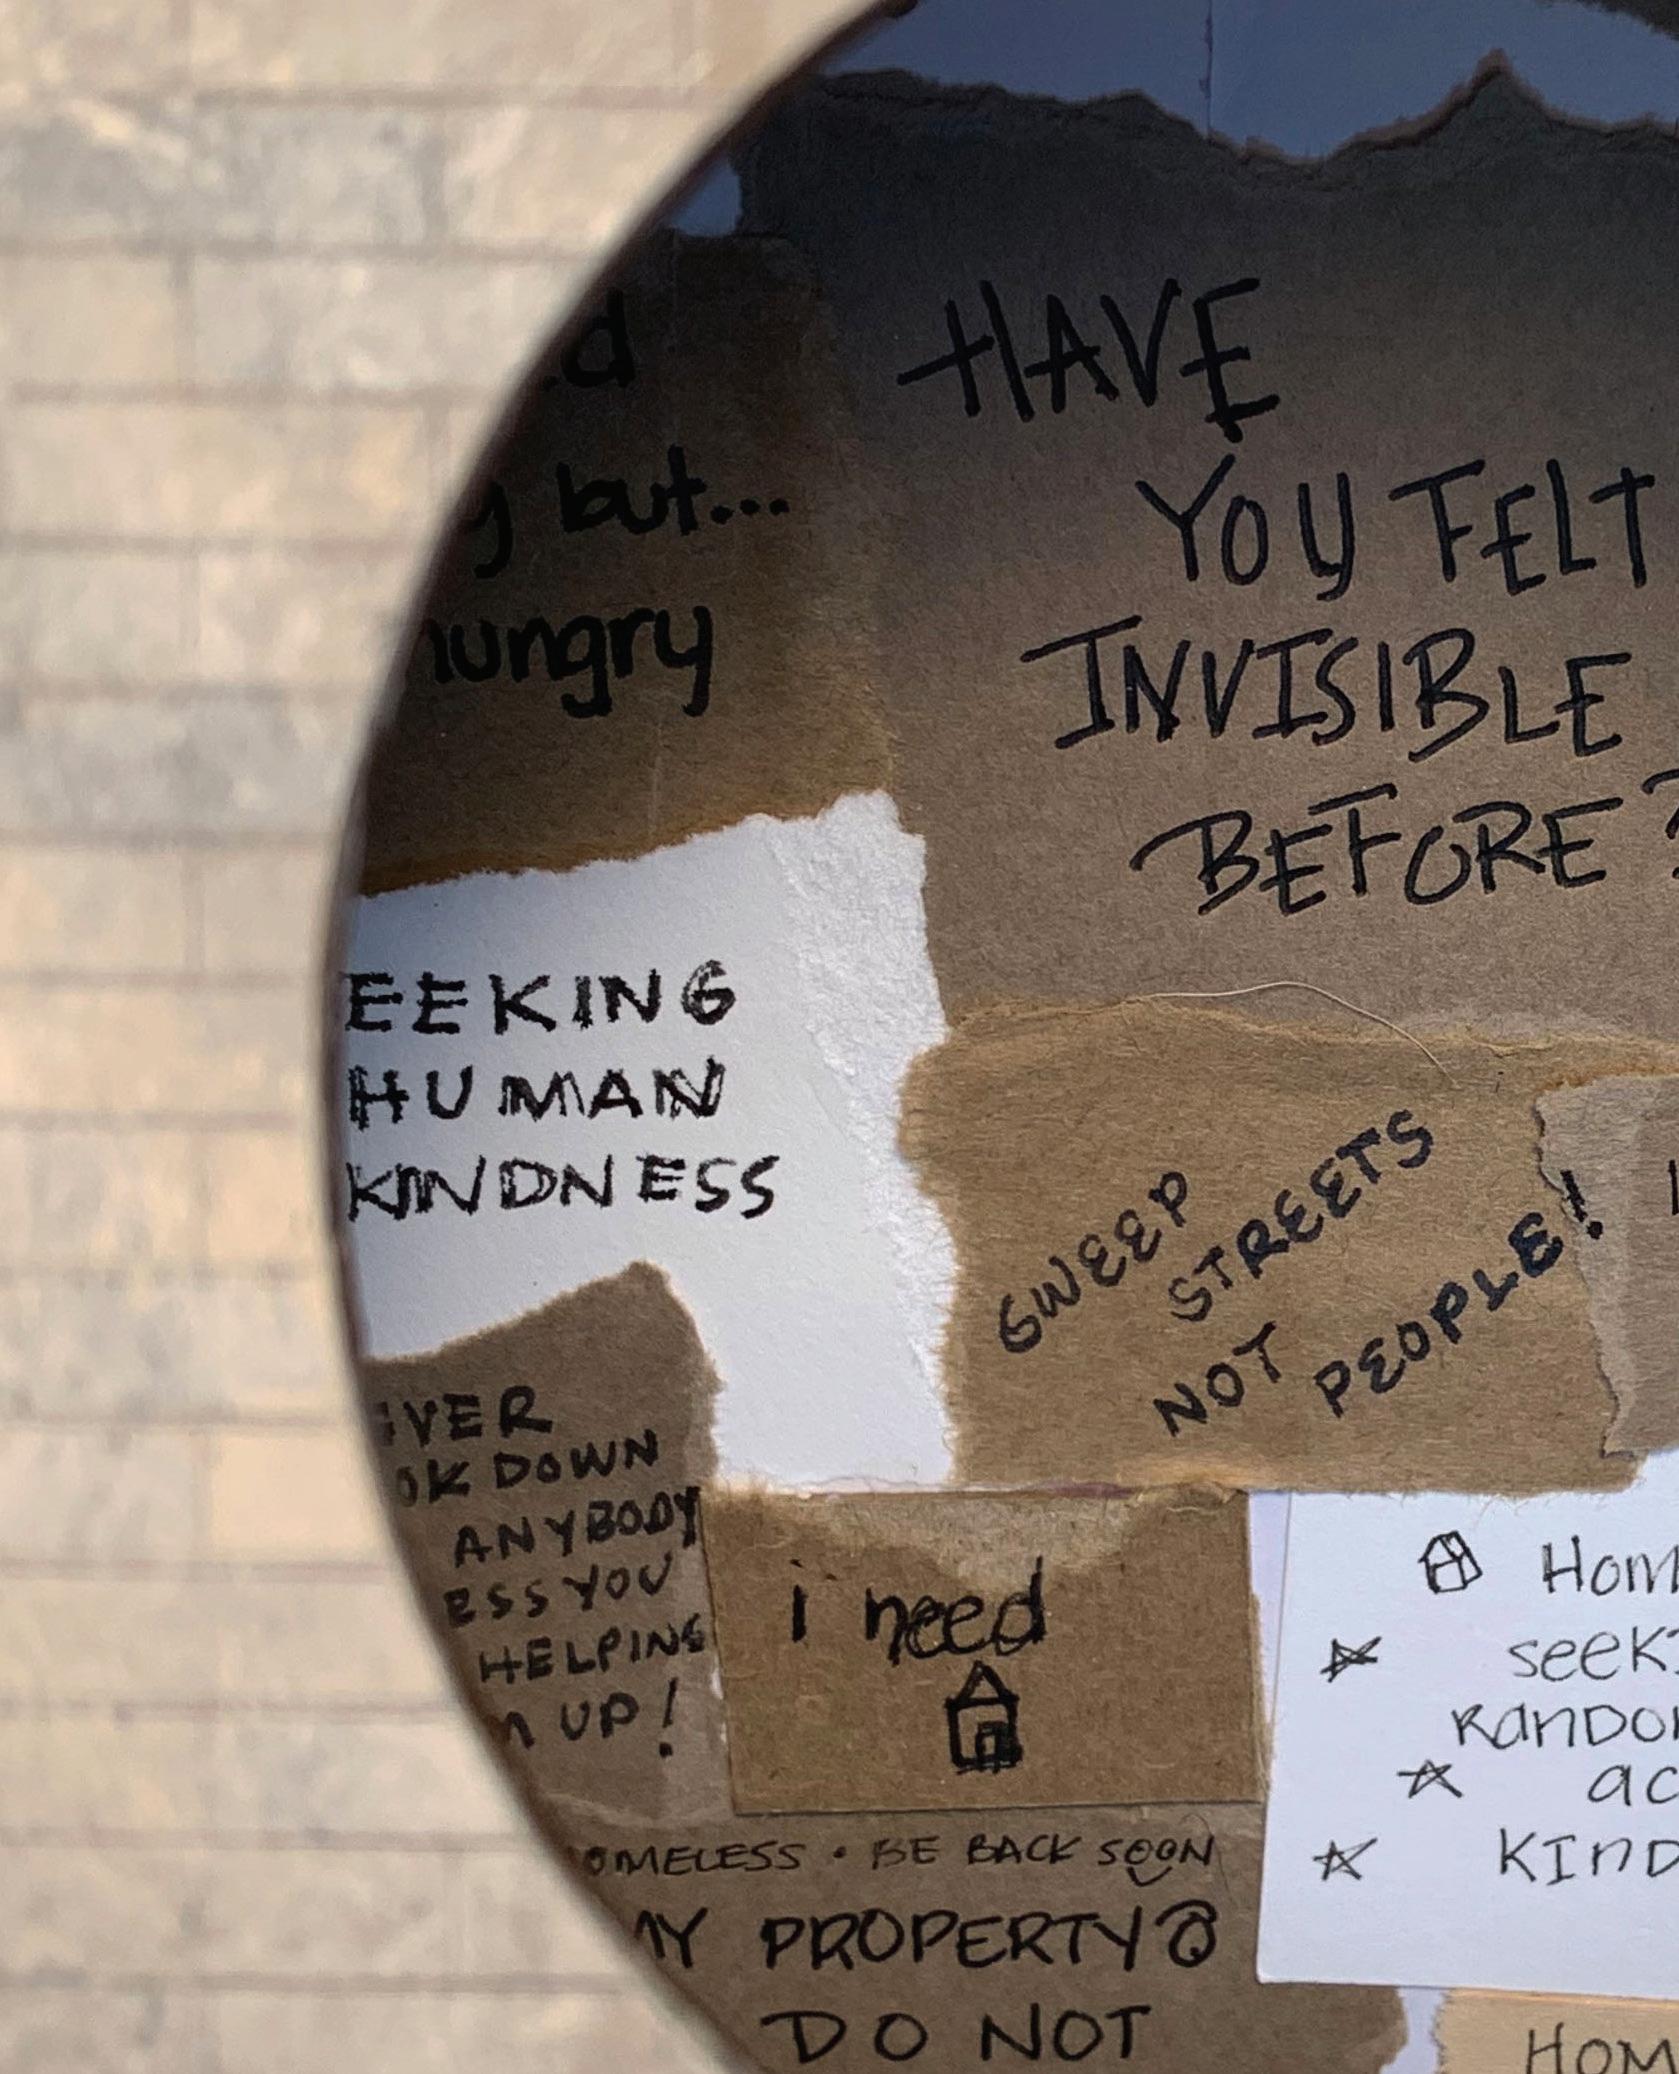 but...
hungry
HAVE
YOU FELT
INVISIBLE
BEFORE?
EEKING
HUMAN
KINDNESS
SWEEP
STREETS
NOT
PEOPLE!
VER
OK DOWN
ANYBODY
ESS YOU
HELPING
UP!
i need
HOM
SEEKI
RANDOM
AC
KIND
OMELESS • BE BACK SOON
MY PROPERTY
DO NOT
HOM